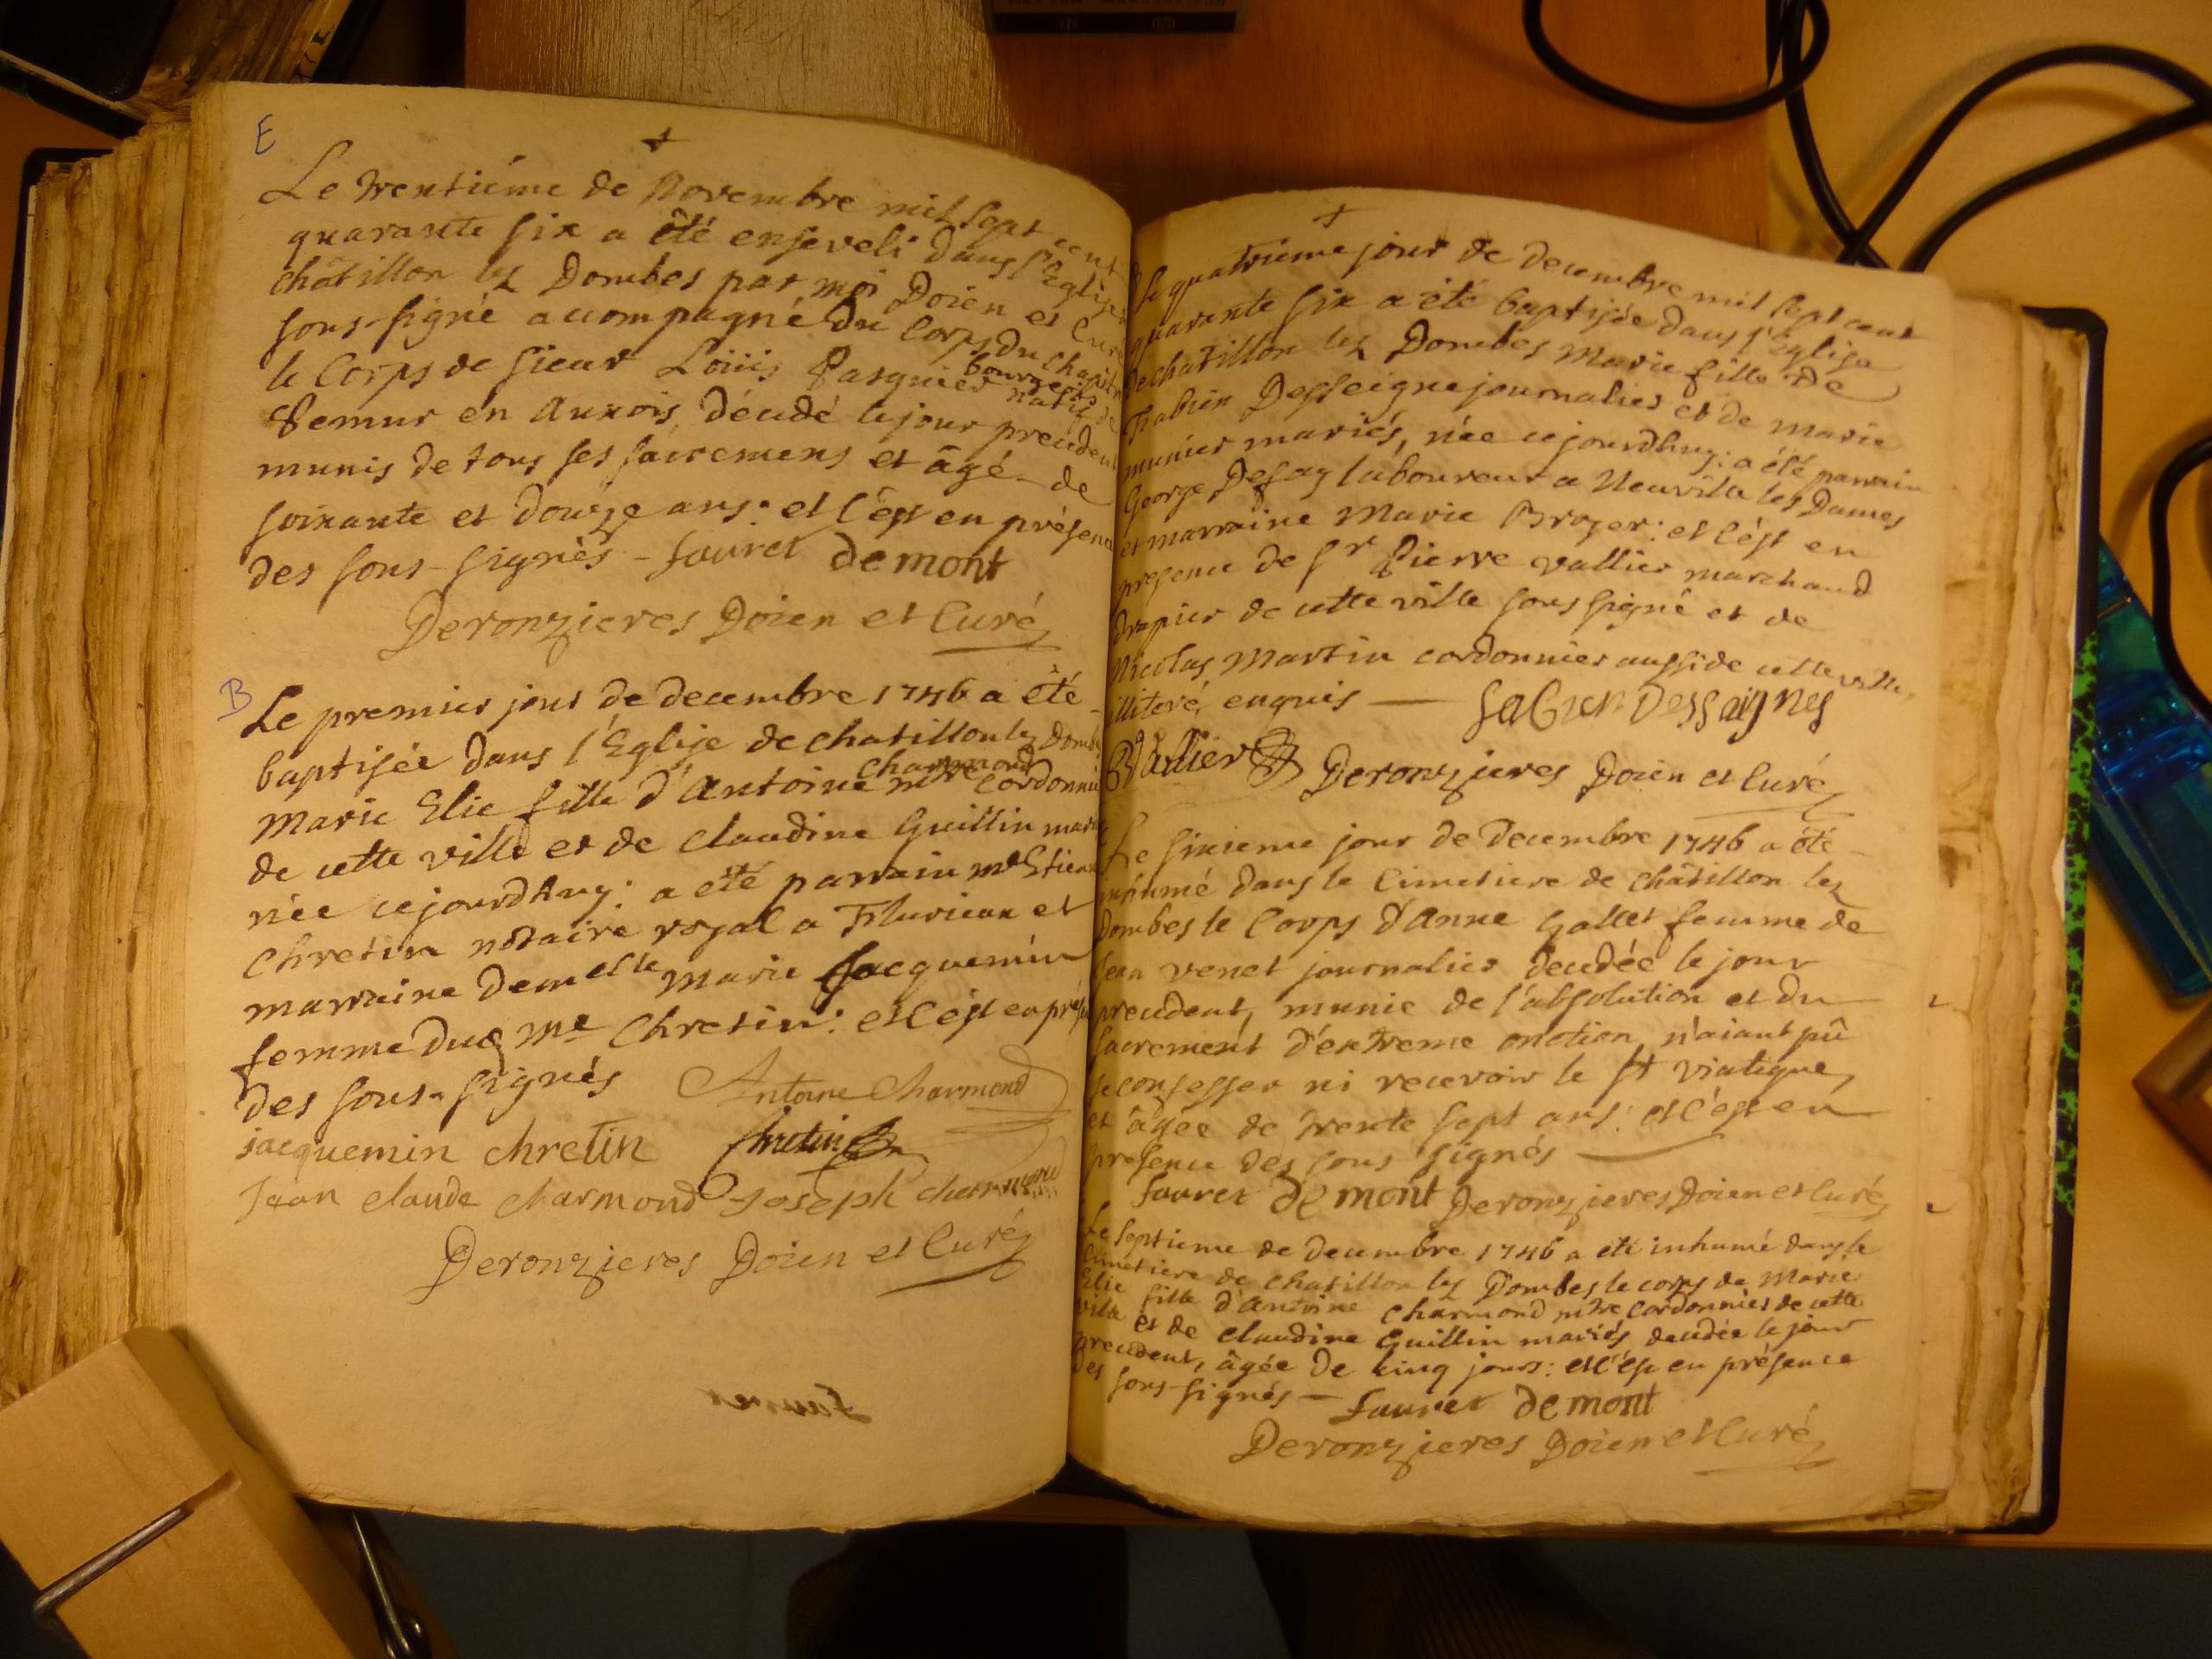 E
Le trentiéme de Novembre mil sept cent
quarante six a été enseveli dans l'Eglise de
châtillon les Dombes par moi Doien et Curé
sous-signé accompagné du Corps du Chapitre
le Corps de sieur Loüis Pasquier bourgeois natif de
Semur en Auxois, décédé le jour precedent
munis de tous ses sacremens et âgé de
soixante et douze ans: et c'est en présence
des sous-signés - fauret demont
Deronzieres Doien et Curé
B
Le premier jour de decembre 1746 a été
baptisée dans l'Eglise de chatillon les Dombes
Marie Elie fille d'Antoine charmond mtre cordonnier
de cette ville et de claudine Guillin mariés
née cejourdhuy: a été parrain me Etienne
Chretin notaire royal a Flurieux et
marraine demelle Marie Jacquemin
femme dud me Chretin: et c'est en présence
des sous-signés Antoine Charmond
jacquemin chretin Chretin
Jean claude charmond Joseph charmond
Deronzieres Doien et Curé
fauret
Le quatrieme jour de decembre mil sept cent
quarante six a été baptisée dans l'Eglise
de chatillon les Dombes Marie fille de
Fabien Desseigne journalier et de marie
munier mariés, née cejourdhuy: a été parrain
George Desay laboureur a Neuville les Dames
et marraine Marie Broyer: et c'est en
presence de sr Pierre vallier marchand
drapier de cette ville sous signé et de
Nicolas Martin cordonnier aussi de cette ville,
illiteré, enquis — fabien Dessaignes
P Vallier Deronzieres Doien et Curé
Le sixieme jour de Decembre 1746 a été
inhumé dans le Cimetiere de châtillon les
Dombes le Corps d'Anne Gallet femme de
Jean venet journalier decedée le jour
precedent, munie de l'absolution et du
sacrement d'extreme onction, n'aiant pû
se confesser ni recevoir le st viatique,
et âgée de trente sept ans: et c'est en
presence des sous signés
fauret demont Deronzieres Doien et Curé
Le septieme de decembre 1746 a été inhumé dans le
Cimetiere de chatillon les Dombes le corps de Marie
Elie fille d'Antoine Charmond mtre Cordonnier de cette
ville et de claudine Guillin mariés decedée le jour
precedent, âgée de cinq jours: et c'est en présence
des sous-signés — fauret demont
Deronzieres Doien et Curé